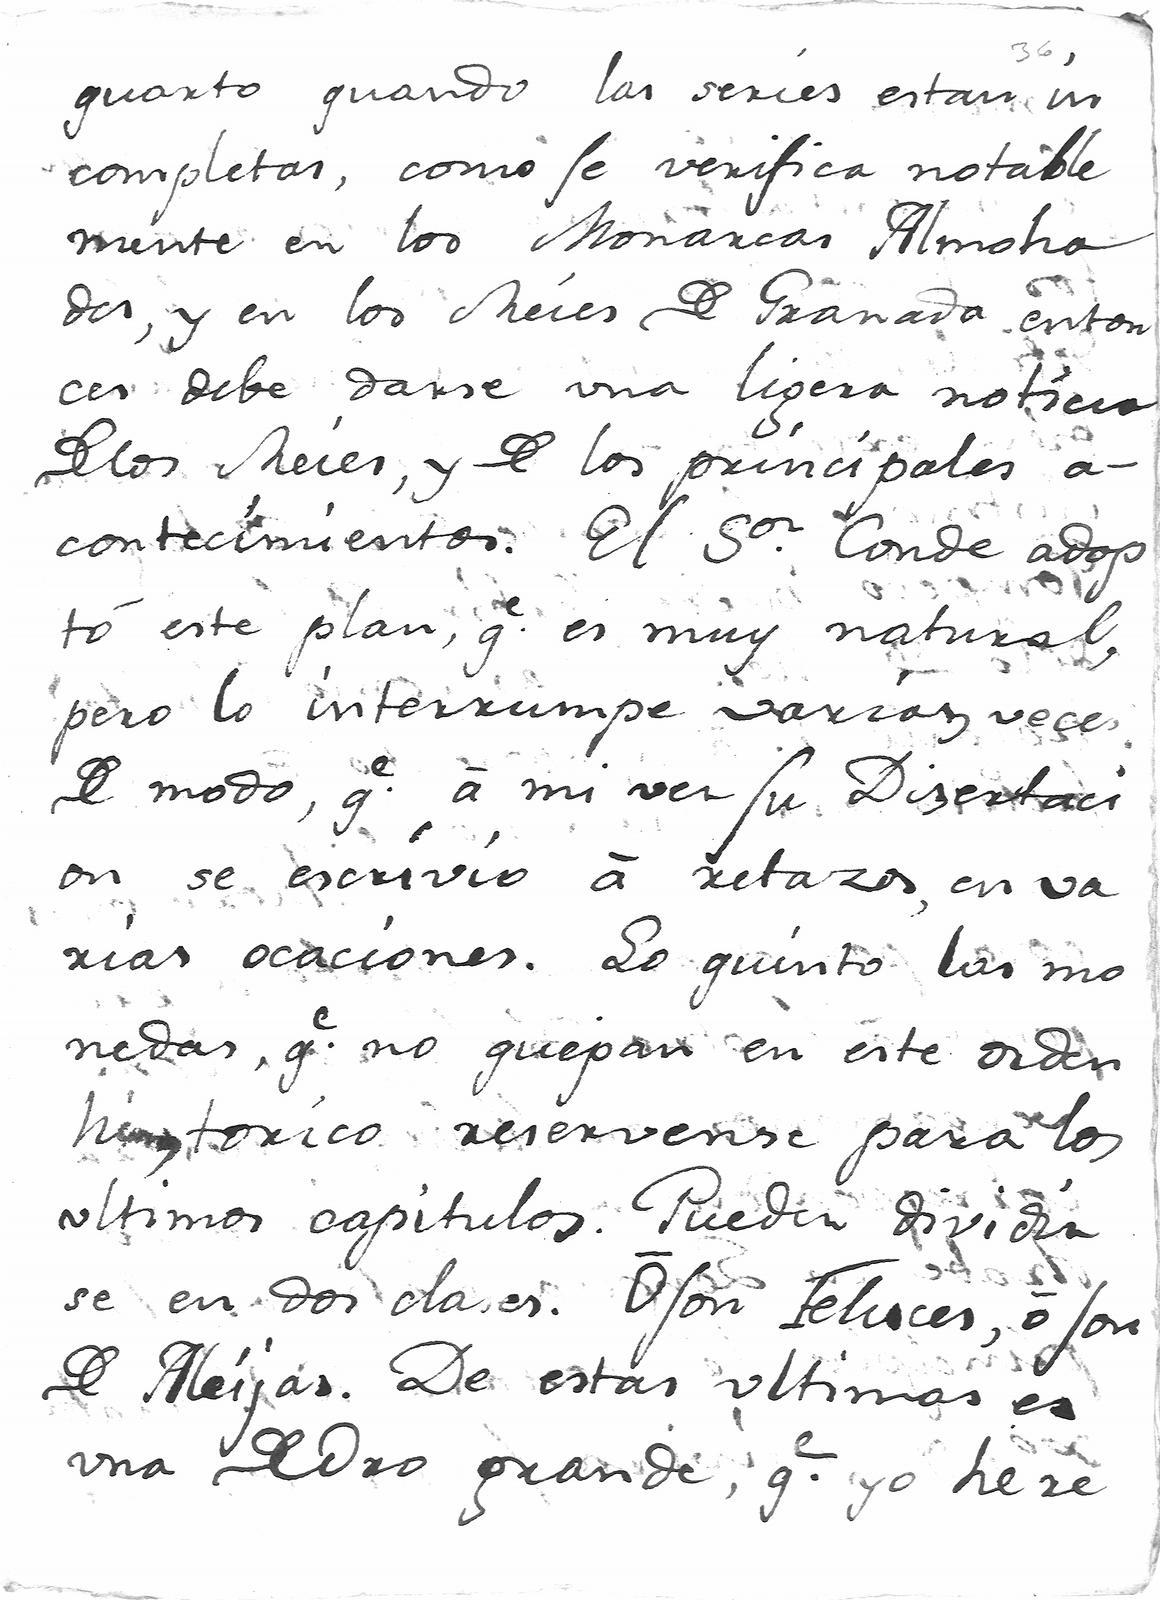 36,
quarto quando las seríes estan in
completas, como se verifica notable
mente en los Monarcas Almoha
des, y en los Reíes de Granada enton
ces debe darse una ligera noticia
de los Reíes, y de los príncípales a-
contecímíentos. El Sor. Conde adop
tó este plan, qe. es muy natural,
pero lo ínterrumpe varías veces
de modo, qe. ā mi ver su Disertaci
on se escrívío ā retazos, en va
rías ocacíones. Lo quínto las mo
nedas, qe. no quepan en este orden
históríco reservense para los
vltimos capítulos. Pueden dividír
se en dos clases. Ō son Feluces, ō son
de Aleíjas. De estas vltimas es
vna de Oro grande, qe. yo he re